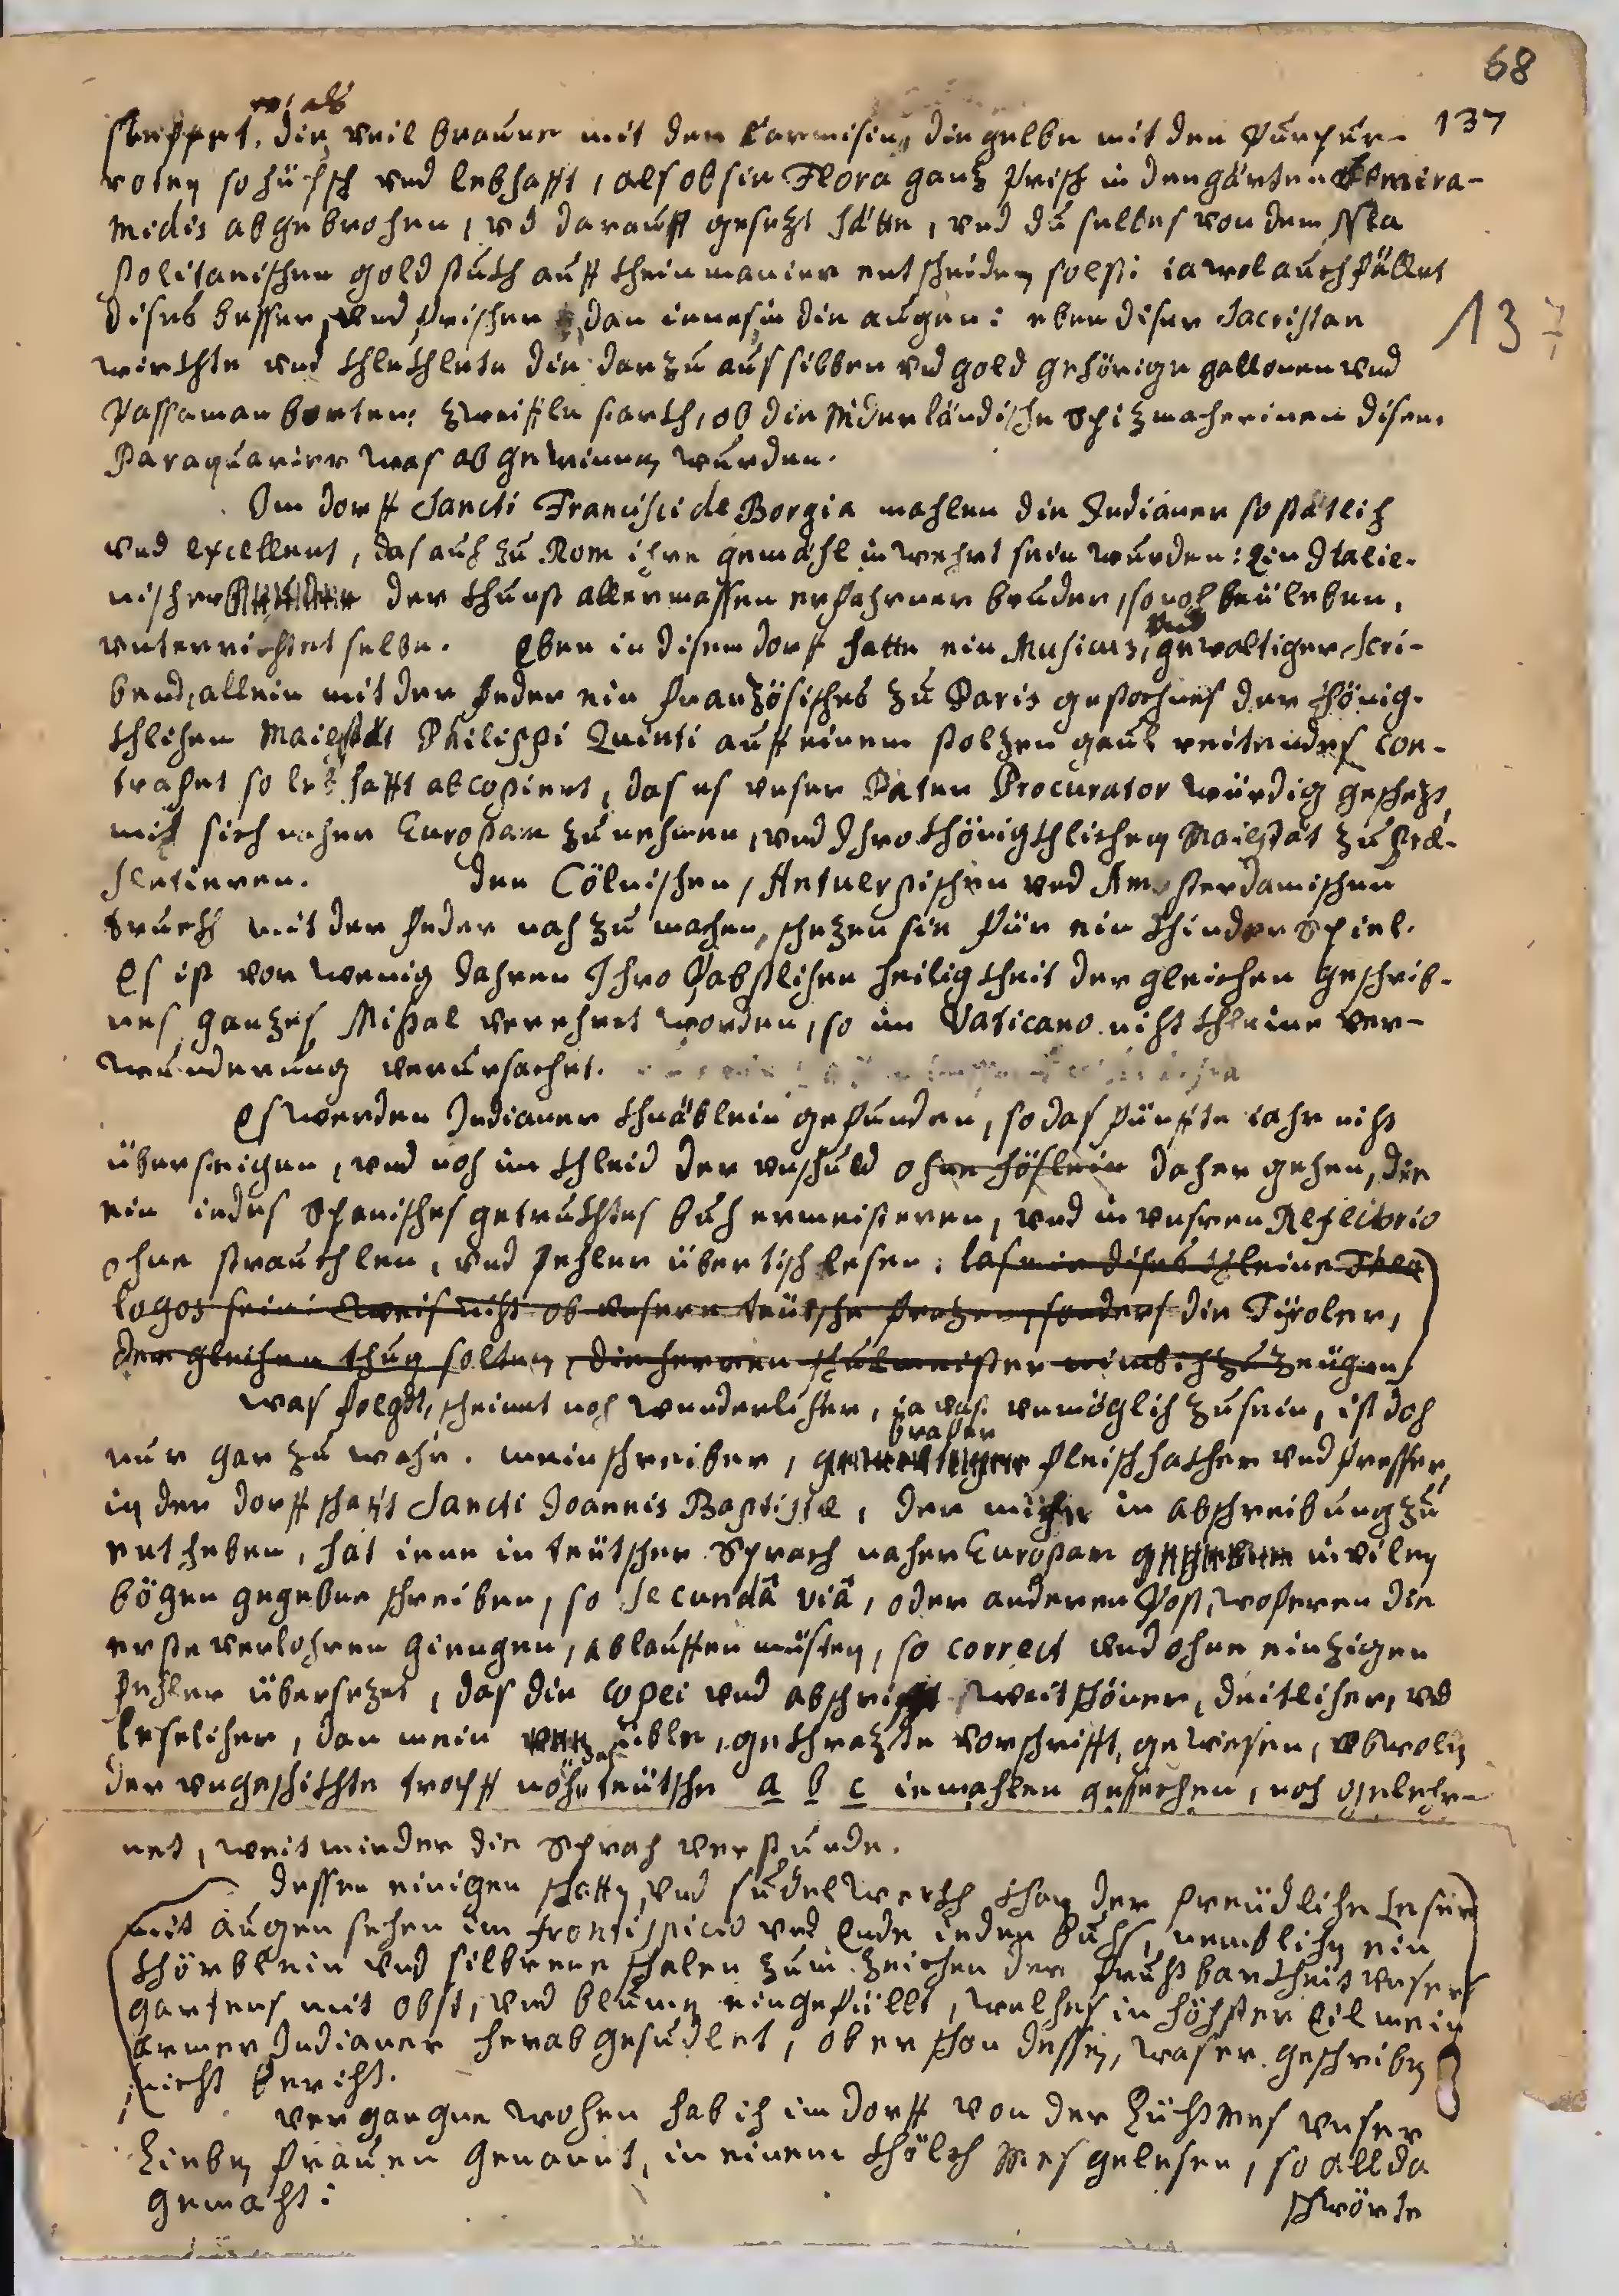 68
137
wol als
steppet, die veil braune mit den Carmisin, die gelbe mit den Purpur-
roten so hüpsch und lebhafft, als ob sie Flora ganz frisch in den gärten Semira-
midis abgebrochen, vnd darauff gesezt hätte, vnd du selbes von dem Nea
politanischen goldstuckh auff khein manier entscheiden soltst: ia wol auch fället
dises besser, vnd frischer dan ienes in die augen: eben diser Sacristan
137
wirckhte vnd khlekhlete die darzu aus silber vnd gold gehörige gallonen vnd
Passaman borten: zweifle starckh, ob die Niderländische Spizmacherinen disem
Paraquarier was abgewinnen wurden.
Im dorff Sancti Francisci de Borgia mahlen die Indianer so stätlich
vnd excellent, das auch zu Rom ihre gemähl in wehrt sein wurden: Ein Italie-
nischer der khunst allermassen erfahrner bruder, so noch beÿ leben,
unterrichtet selbe. Eben in disem dorff hatte ein Musicus, vnd gewaltiger Scri-
bend, allein mit der feder ein französisches zu Paris gestochnes der khönig-
khlichen Maiestät Philippi Quinti auff einem stolzen gaul reitendes Con-
trafet so lebhafft abcopiert, das es vnser Pater Procurator würdig geschezt,
mit sich naher Europam zu nehmen, vnd Ihro khönigkhlichen Maiestät zu præ-
sentieren. Den Cölnischen, Antuerpischen vnd Amsterdamischen
truckh mit der feder nach zu machen, schezen sie für ein khinderspiel.
Es ist vor wenig Jahren Ihro Päbstlichen heiligkheit dergleichen geschrib-
nes ganzes Missal verehret worden, so im Vaticano nicht khleine ver-
wunderung verursachet.
Es werden Indianer khnäblein gefunden, so das fünffte iahr nicht
übersteigen, vnd noch im khleid der vnschuld ohne höslein daher gehen, die
ein iedes Spanisches getruckhtes buch ermeisteren, vnd in vnsren Refectorio
ohne strauchlen, vnd fehler über tisch lesen: las mir dises khleine Theo
logos sein: weis nicht ob vnsere teütsche frazen, sonders die Tÿroler,
dergleichen thun solten, die herren schulmeister wird ich zu zeügen)
Was folgt, scheinet noch wunderlicher, ia was vnmöglich zu sein, ist doch
nur gar zu wahr. mein schreiber, brafer fleischhackher vnd fresser,
in der dorffschafft Sancti Joannis Baptistæ, der mich in abschreibung zu
entheben, hat iene in teütscher Sprach naher Europam in vilen
bögen gegebne schreiben, so secundâ viâ, oder anderen Post, woferen die
erste verlohren giengen, ablauffen müsten, so correct vnd ohne einzigen
fehler übersezet, das die copei vnd abschrifft weit schöner, deitlicher, vnd
leselicher, dan mein üble, gekhrazte vorschrifft, gewesen, obwolen
der vngeschickhte tropff noch das teütsche a b c iemahlen gesechen, noch geleh-
net, weit minder die Sprach verstunde.
dessen einigen schatten, vnd sudelwerckh khan der freüdliche Leser
mit augen sehen im frontispicio vnd Ende ieden buchs, nemblichen ein
khörblein vnd silbrene schalen zum zeichen der fruchtbarkheit vnsers
gartens mit obst, vnd blumen eingefüllt, welches in höchster Eil mein
armer Indianer herab gesudlet, ober schon dessen, was er geschriben
nicht bericht.
Vergangne wochen hab ich im dorff von der Liechtmes vnser
Lieben frauen genannt, in einem khelch Mes gelesen, so allda
gemacht:
schwörte